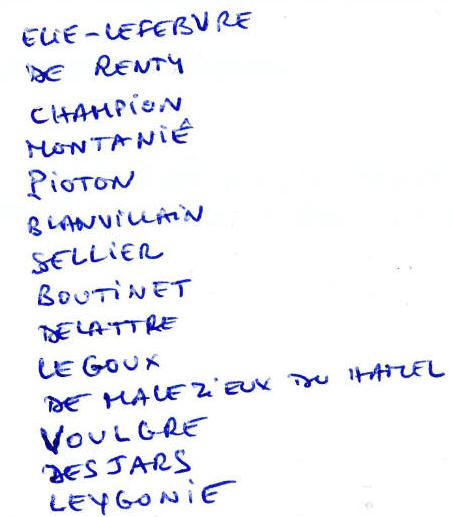 ELIE-LEFEBVRE
DE RENTY
CHAMPION
MONTANIÉ
PIOTON
BLANVILLAIN
SELLIER
BOUTINET
DELATTRE
LEGOUX
DE MALEZIEUX DU HAMEL
VOULGRE
DESJARS
LEYGONIE